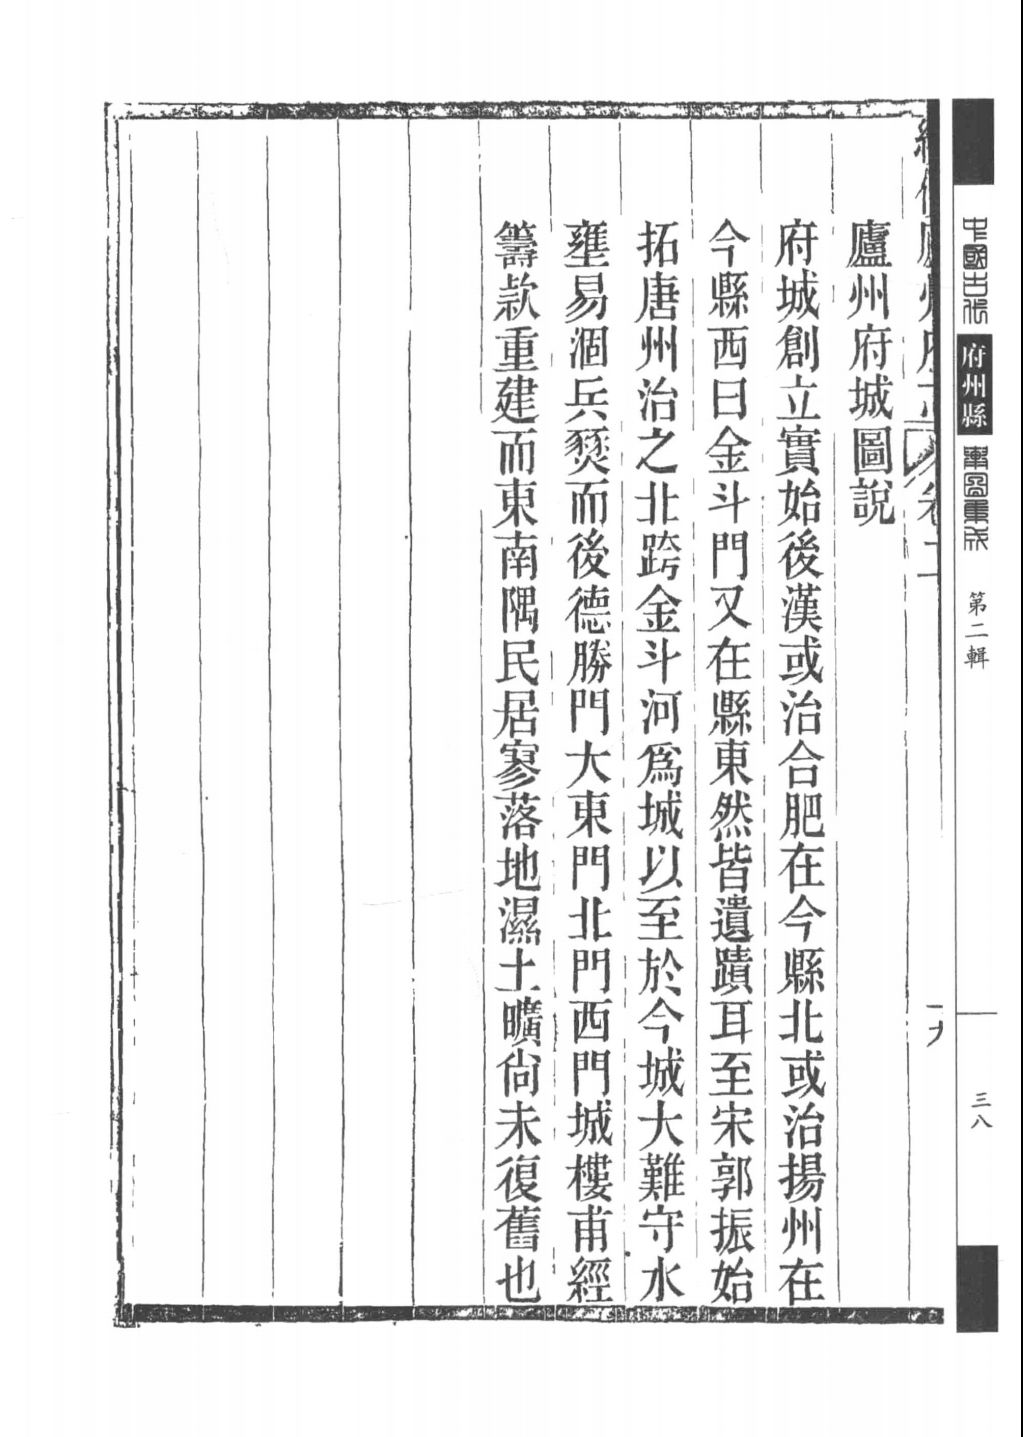 中國古代
府州縣
輿圖集成
第二輯
三八
廬州府城圖說
府城創立實始後漢或治合肥在今縣北或治揚州在
今縣西曰金斗門又在縣東然皆遺蹟耳至宋郭振始
拓唐州治之北跨金斗河爲城以至於今城大難守水
壅易涸兵燹而後德勝門大東門北門西門城樓甫經
籌款重建而東南隅民居寥落地濕土曠尙未復舊也